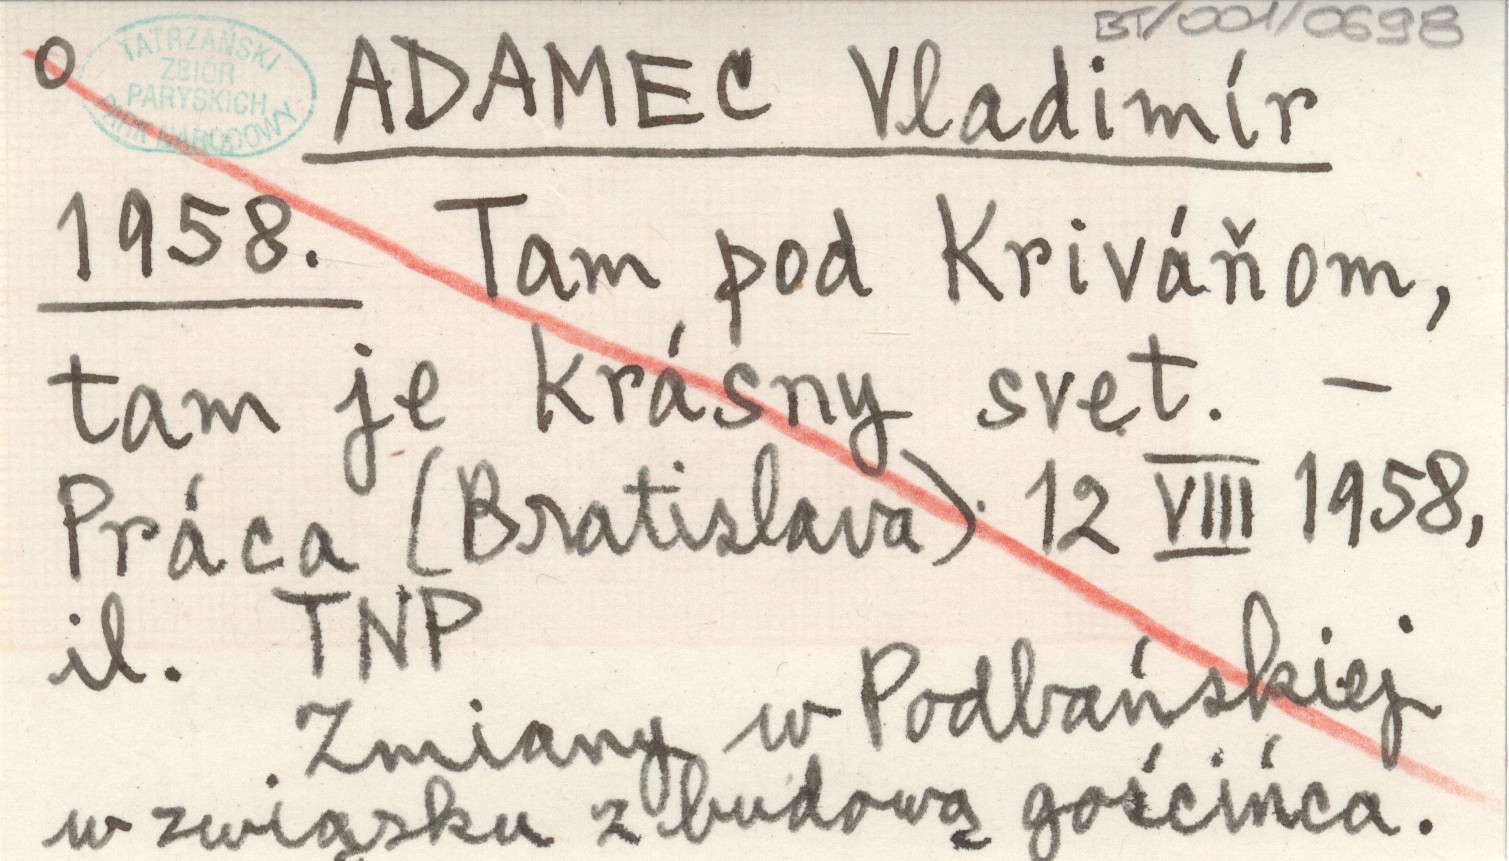 BT/001/0698
O
TATRZAŃSKI
ZBIÓR
PARYSKICH
PARK NARODOWY
ADAMEC Vladimír
1958. Tam pod Kriváňom,
tam je krásny svet. –
Práca (Bratislava) 12 VIII 1958,
il. TNP
Zmiany w Podbańskiej
w związku z budową gościńca.